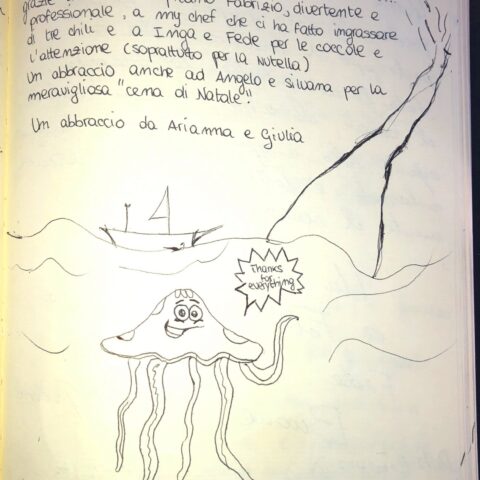 grazie Fabrizio, divertente e
professionale, a my chef che ci ha fatto ingrassare
di tre chili e a Inga e Fede per le coccole e
l'attenzione (soprattutto per la Nutella)
Un abbraccio anche ad Angelo e silvana per la
meravigliosa "cena di Natale"!
Un abbraccio da Arianna e Giulia
Thanks
for
everything